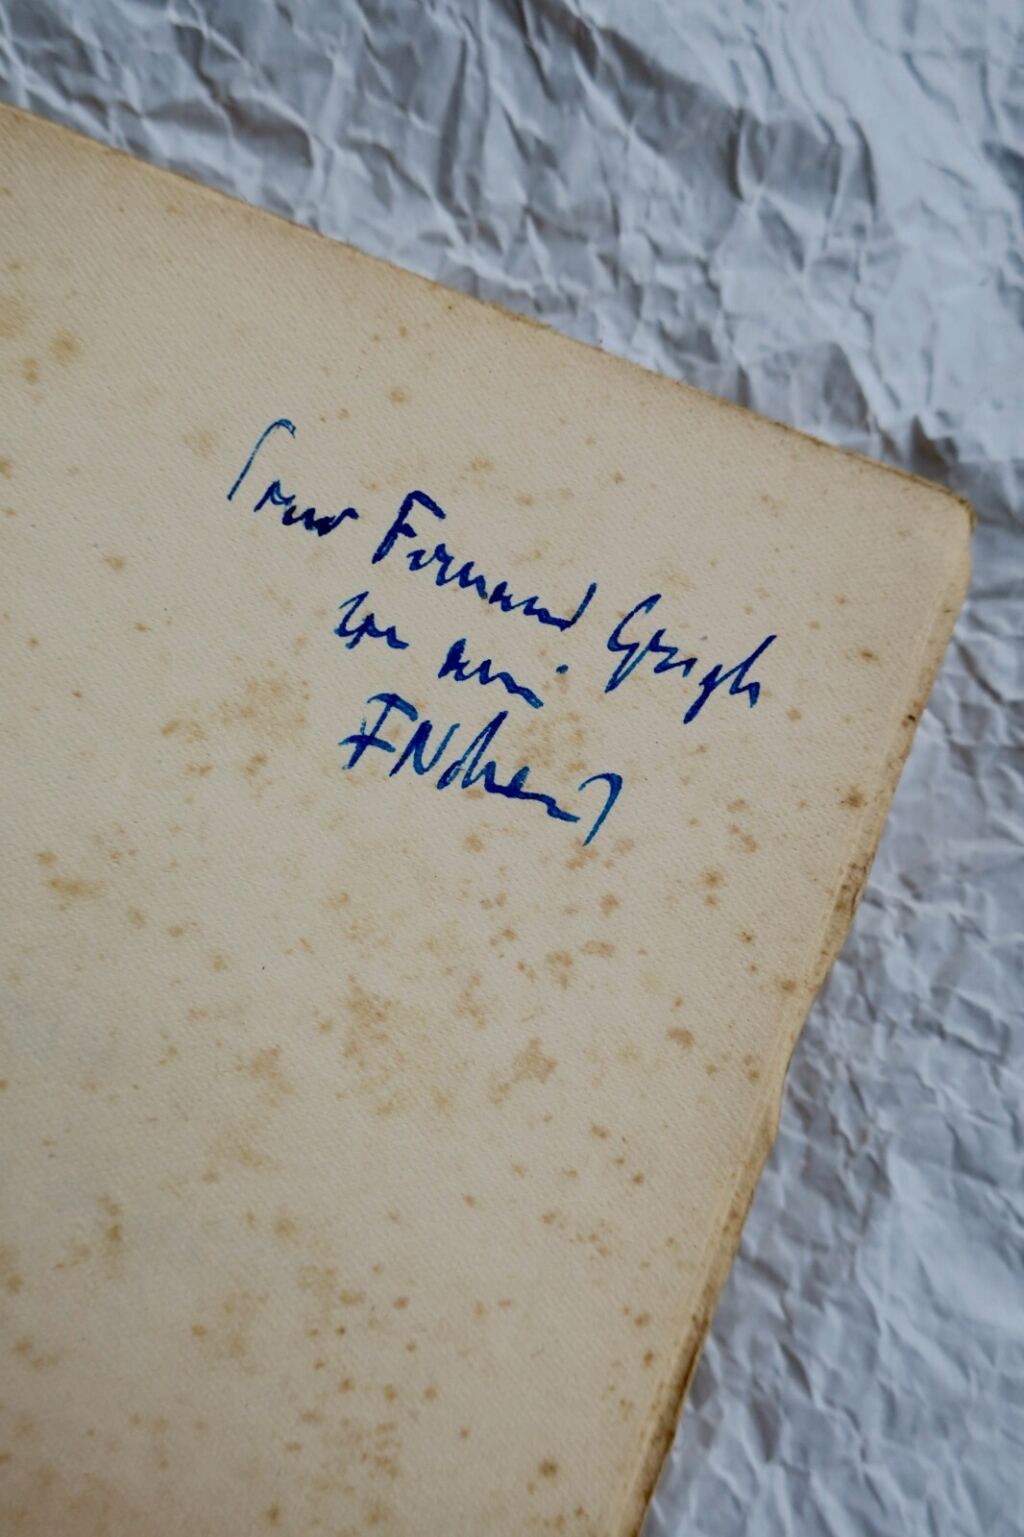 Pour Fernand Gregh
son ami